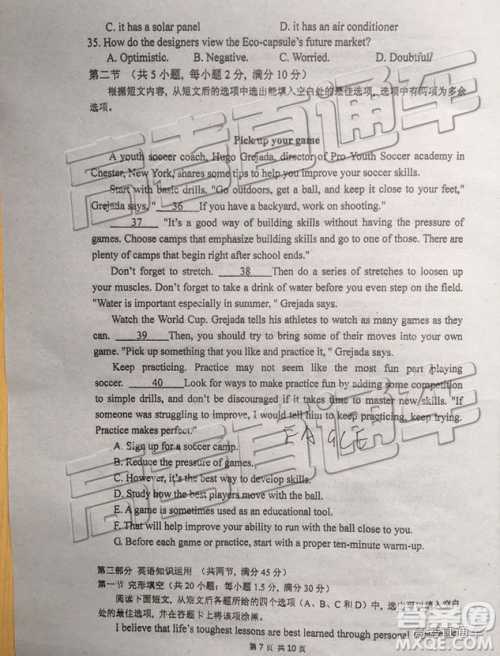 C. it has a solar panel D. it has an air conditioner
35. How do the designers view the Eco-capsule's future market?
A. Optimistic. B. Negative. C. Worried. D. Doubtful?
第二节 (共5小题, 每小题2分, 满分10分)
根据短文内容, 从短文后的选项中选出能填入空白处的最佳选项, 选项中有两项为多余
选项。
Pick up your game
A youth soccer coach, Hugo Grejada, director of Pro Youth Soccer academy in
Chester, New York, shares some tips to help you improve your soccer skills.
Start with basic drills. "Go outdoors, get a ball, and keep it close to your feet,"
Grejada says, " 36 If you have a backyard, work on shooting."
37 "It's a good way of building skills without having the pressure of
games. Choose camps that emphasize building skills and go to one of those. There are
plenty of camps that begin right after school ends."
Don't forget to stretch. 38 Then do a series of stretches to loosen up
your muscles. Don't forget to take a drink of water before you even step on the field.
"Water is important especially in summer, " Grejada says.
Watch the World Cup. Grejada tells his athletes to watch as many games as they
can. 39 Then, you should try to bring some of their moves into your own
game. "Pick up something that you like and practice it, " Grejada says.
Keep practicing. Practice may not seem like the most fun part playing
soccer. 40 Look for ways to make practice fun by adding some competition
to simple drills, and don't be discouraged if it takes time to master new skills. "If
someone was struggling to improve, I would tell him to keep practicing, keep trying.
Practice makes perfect."
A. Sign up for a soccer camp.
B. Reduce the pressure of games.
C. However, it's the best way to develop skills.
D. Study how the best players move with the ball.
E. A game is sometimes used as an educational tool.
F. That will help improve your ability to run with the ball close to you.
G. Before each game or practice, start with a proper ten-minute warm-up.
第二部分 英语知识运用 (共两节, 满分45分)
第一节 完形填空 (共20小题; 每小题1.5分, 满分30分)
阅读下面短文, 从短文后各题所给的四个选项 (A、B、C和D) 中, 选出可以填入空白
处的最佳选项, 并在答题卡上将该项涂黑。
I believe that life's toughest lessons are best learned through personal
第7页 共10页
高考直通车
高考直通车
高考直通车